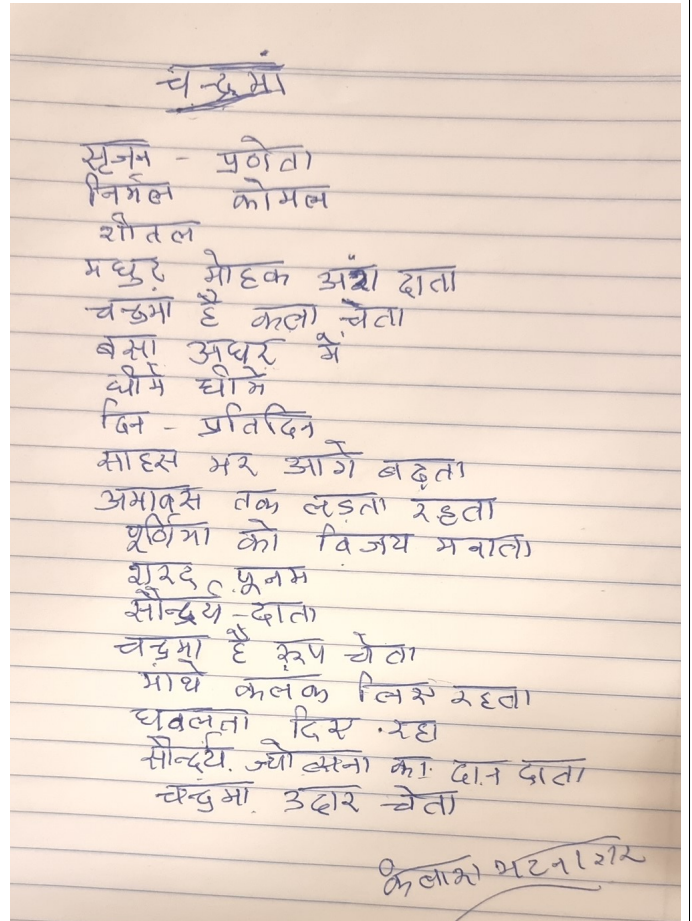 चन्द्रमां
सृजन - प्रणेता
निर्मल कोमल
शीतल
मधुर मोहक अंश दाता
चन्द्रमा है कला चेता
बसा अधर में
धीमे धीमे
दिन - प्रतिदिन
साहस भर आगे बढ़ता
अमावस तक लड़ता रहता
पूर्णिमा को विजय मनाता
शरद पूनम
सौन्दर्य - दाता
चन्द्रमा है रूप चेता
माथे कलंक लिए रहता
धवलता दिए रहा
सौन्दर्य ज्योत्सना का दान दाता
चन्द्रमा उदार चेता
कैलाश भटनागर